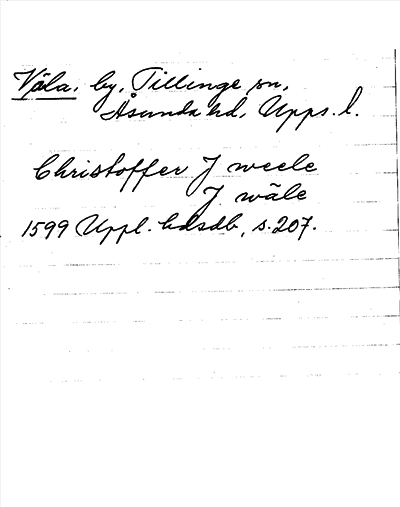 Våla, by, Tillinge sn,
Åsunda hd, Upps. l.
Christoffer J weele
J. wåle
1599 Uppl. hdsdb, s. 207.